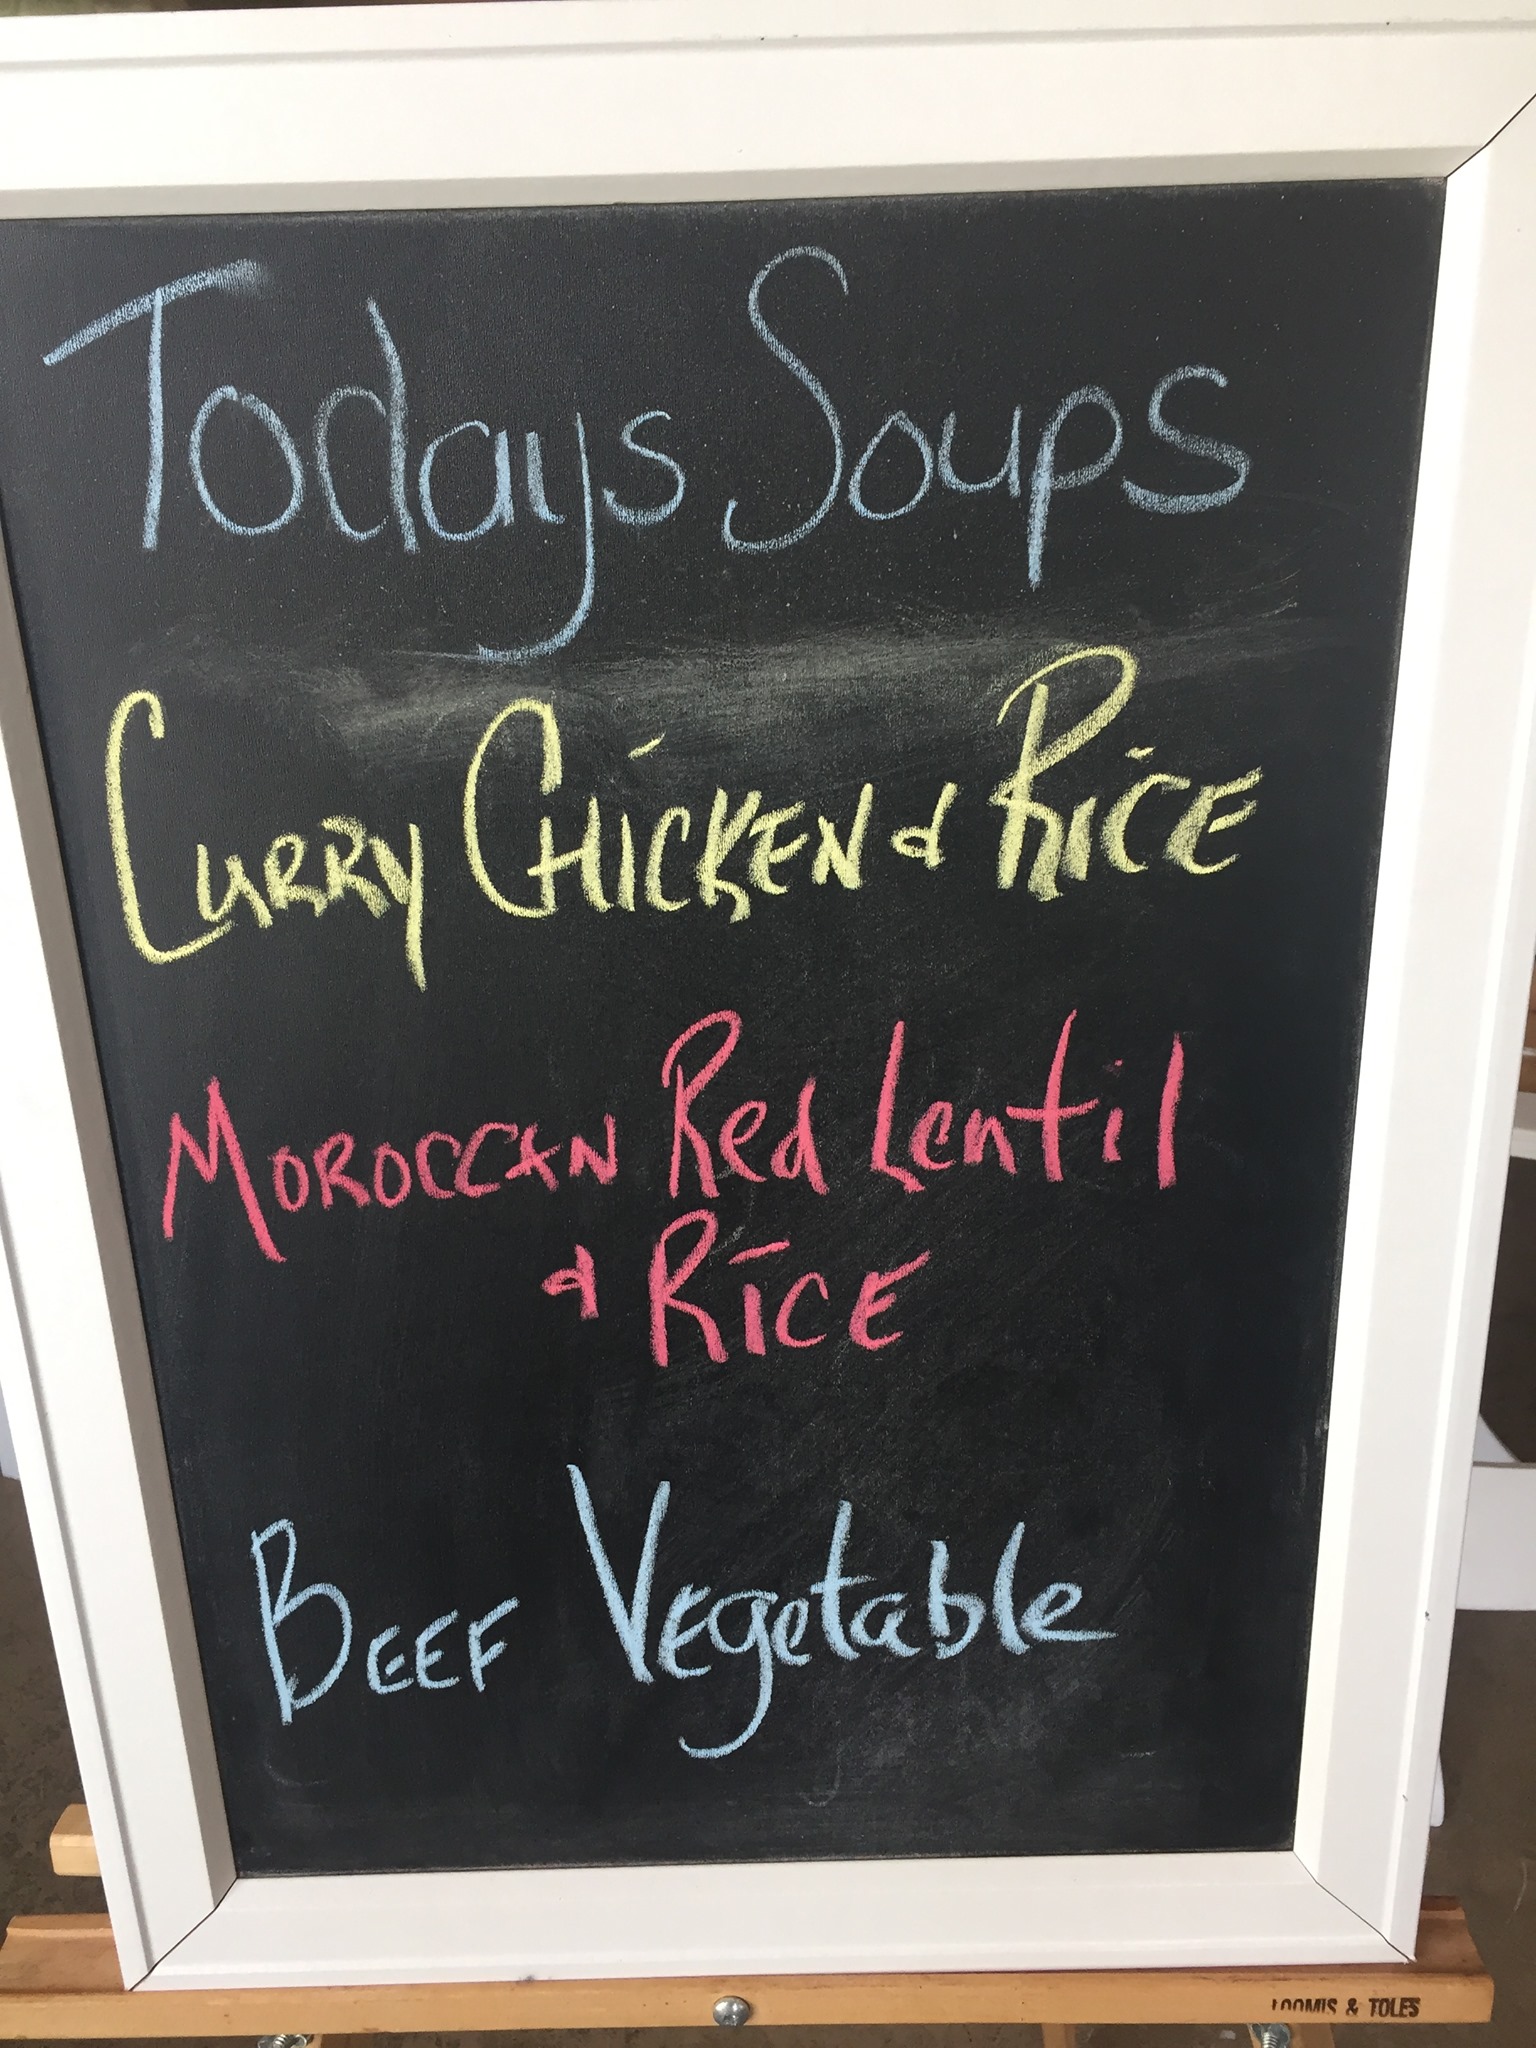 Todays Soups
CURRY CHICKEN & RICE
MOROCCAN Red Lentil
& RICE
BEEF Vegetable
LOOMIS & TOLES